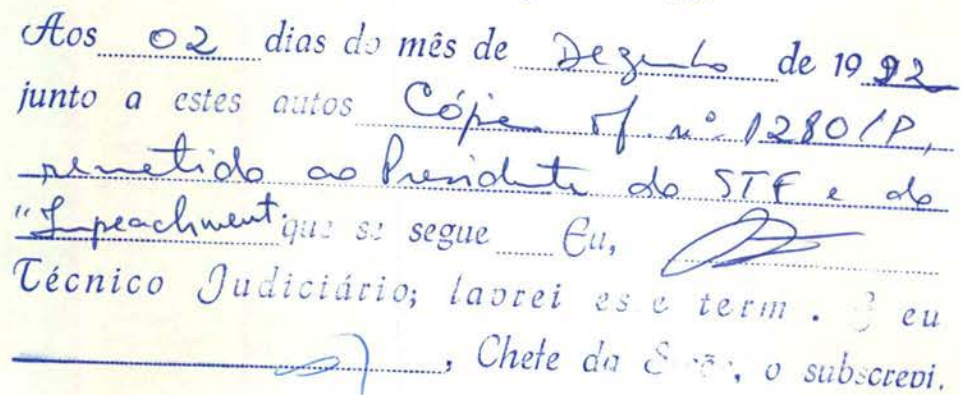 Aos 02 dias do mês de Dezembro de 1992
junto a estes autos Cópia of. nº 1280/P,
remetido ao Presidente do STF e do
"Impeachment" que se segue Eu,
Técnico Judiciário; lavrei es e term . E eu
, Chefe da Seção, o subscrevi.